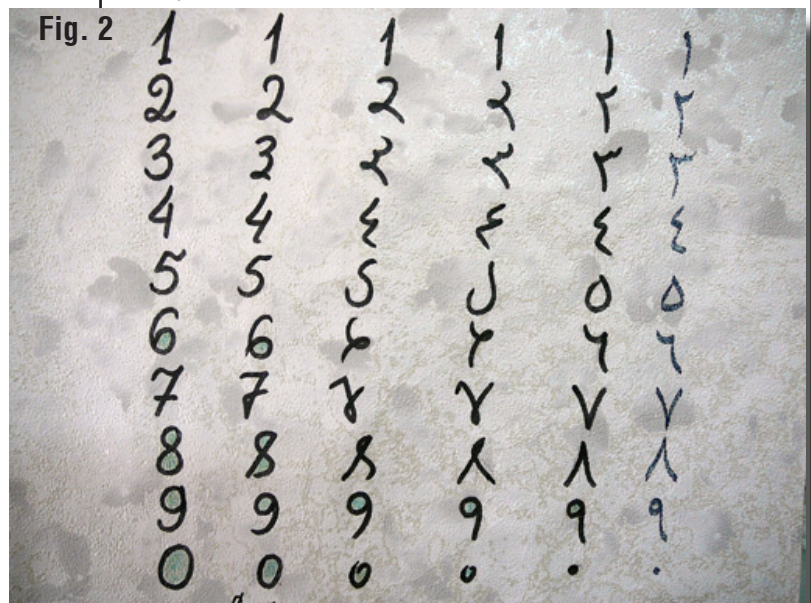 Fig. 2
1 1 1 1 ١ ١
2 2 2 2 ٢ ٢
3 3 ٣ ٣
4 4 ٤ ٤ ٤ ٤
5 5 5 ٥ ٥
6 6 ٦ ٦
7 7 ٧ ٧
8 8 ٨ ٨
9 9 9 9 ٩ ٩
0 0 0 0 ٠ ٠